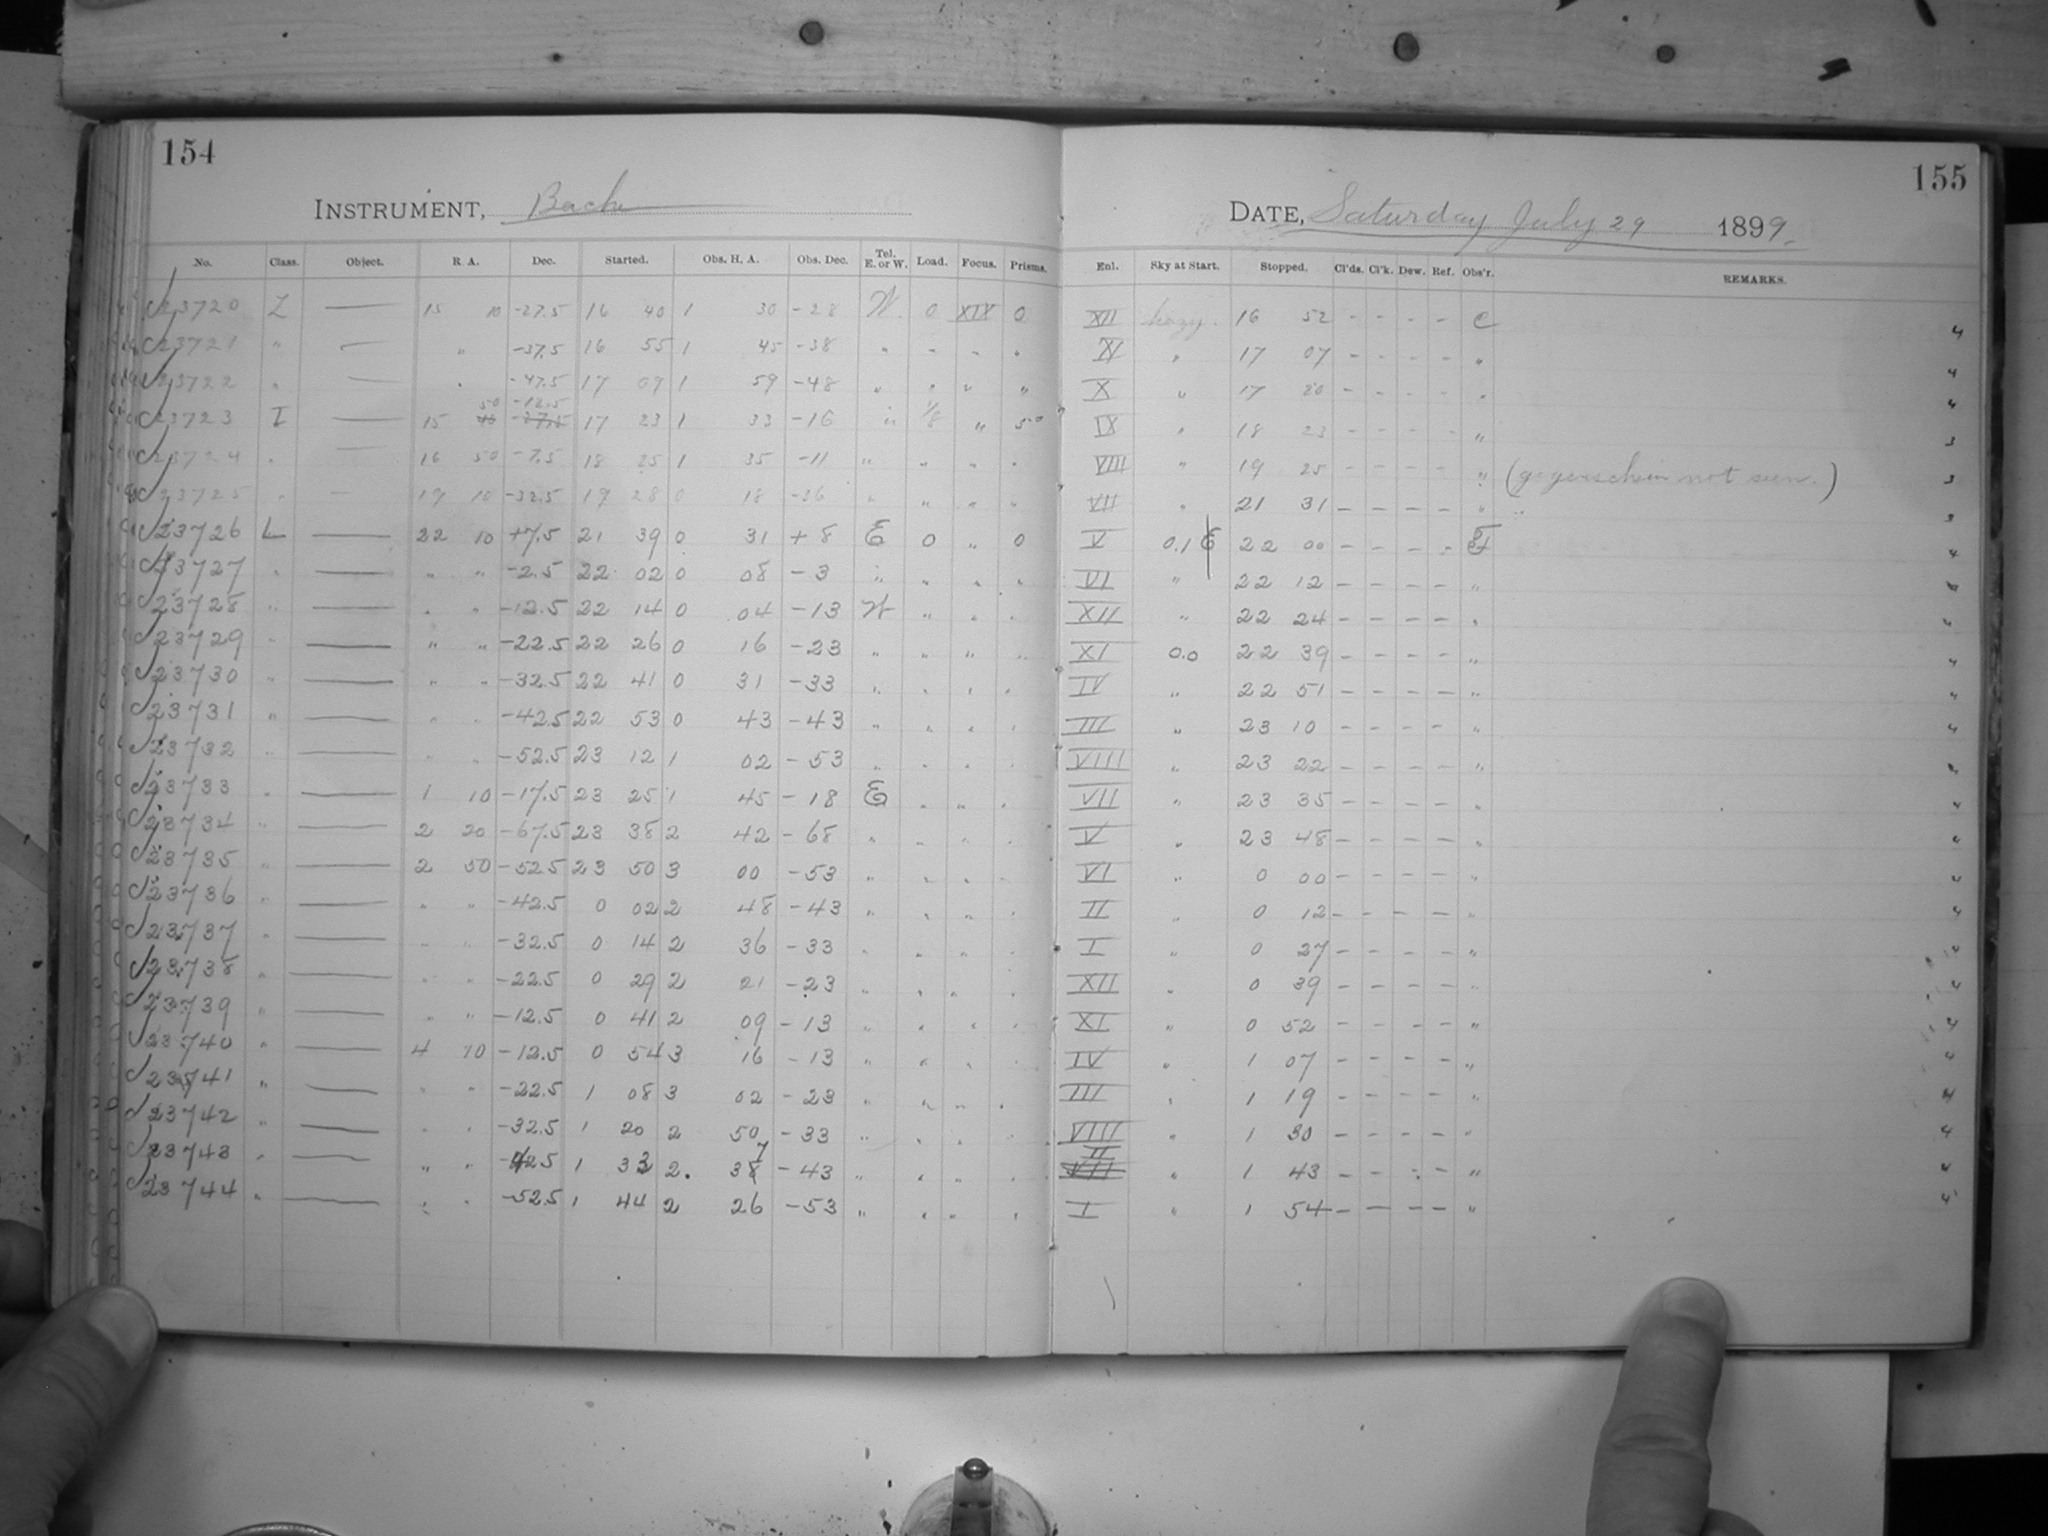 154
INSTRUMENT, Bache
No. Class. Object. R. A. Dec. Started. Obs. H. A. Obs. Dec. Tel. E. or W. Load. Focus. Prisms.
23720 L — 15 10 -27.5 16 40 1 30 -28 W. 0 XIX 0
23721 " — " -37.5 16 55 1 45 -38 " " " "
23722 " — " -47.5 17 09 1 59 -48 " " " "
23723 I — 15 50 -12.5 17 23 1 33 -16 " 1/8 "
23724 " — 16 50 -7.5 18 25 1 35 -11 " " " "
23725 " — 19 10 -32.5 19 28 0 18 -36 " " " "
23726 L — 22 10 +7.5 21 39 0 31 +8 E 0 " 0
23727 " — " " -2.5 22 02 0 08 -3 " " " "
23728 " — " " -12.5 22 14 0 04 -13 W " " "
23729 " — " " -22.5 22 26 0 16 -23 " " " "
23730 " — " " -32.5 22 41 0 31 -33 " " " "
23731 " — " " -42.5 22 53 0 43 -43 " " " "
23732 " — " " -52.5 23 12 1 02 -53 " " " "
23733 " — 1 10 -17.5 23 25 1 45 -18 E " " "
23734 " — 2 20 -67.5 23 38 2 42 -68 " " " "
23735 " — 2 50 -52.5 23 50 3 00 -53 " " " "
23736 " — " " -42.5 0 02 2 48 -43 " " " "
23737 " — " " -32.5 0 14 2 36 -33 " " " "
23738 " — " " -22.5 0 29 2 21 -23 " " " "
23739 " — " " -12.5 0 41 2 09 -13 " " " "
23740 " — 4 10 -12.5 0 54 3 16 -13 " " " "
23741 " — " " -22.5 1 08 3 02 -23 " " " "
23742 " — " " -32.5 1 20 2 50 -33 " " " "
23743 " — " " -42.5 1 33 2 37 -43 " " " "
23744 " — " " -52.5 1 44 2 26 -53 " " " "
155
DATE, Saturday July 29 1899.
Enl. Sky at Start. Stopped. Cl'ds. Cl'k. Dew. Ref. Obs'r. REMARKS.
XII hazy. 16 52 - - - - C 4
XI " 17 07 - - - - " 4
X " 17 20 - - - - " 4
IX " 18 23 - - - - " 3
VIII " 19 25 - - - - " (gegenschein not seen.) 3
VII " 21 31 - - - - " 3
V 0.1 22 00 - - - - 4
VI " 22 12 - - - - " 4
XII " 22 24 - - - - " 4
XI 0.0 22 39 - - - - " 4
IV " 22 51 - - - - " 4
III " 23 10 - - - - " 4
VIII " 23 22 - - - - " 4
VII " 23 35 - - - - " 4
V " 23 48 - - - - " 4
VI " 0 00 - - - - " 4
II " 0 12 - - - - " 4
I " 0 27 - - - - " 4
XII " 0 39 - - - - " 4
XI " 0 52 - - - - " 4
IV " 1 07 - - - - " 4
III " 1 19 - - - - " 4
VIII " 1 30 - - - - " 4
II " 1 43 - - - - " 4
I " 1 54 - - - - " 4